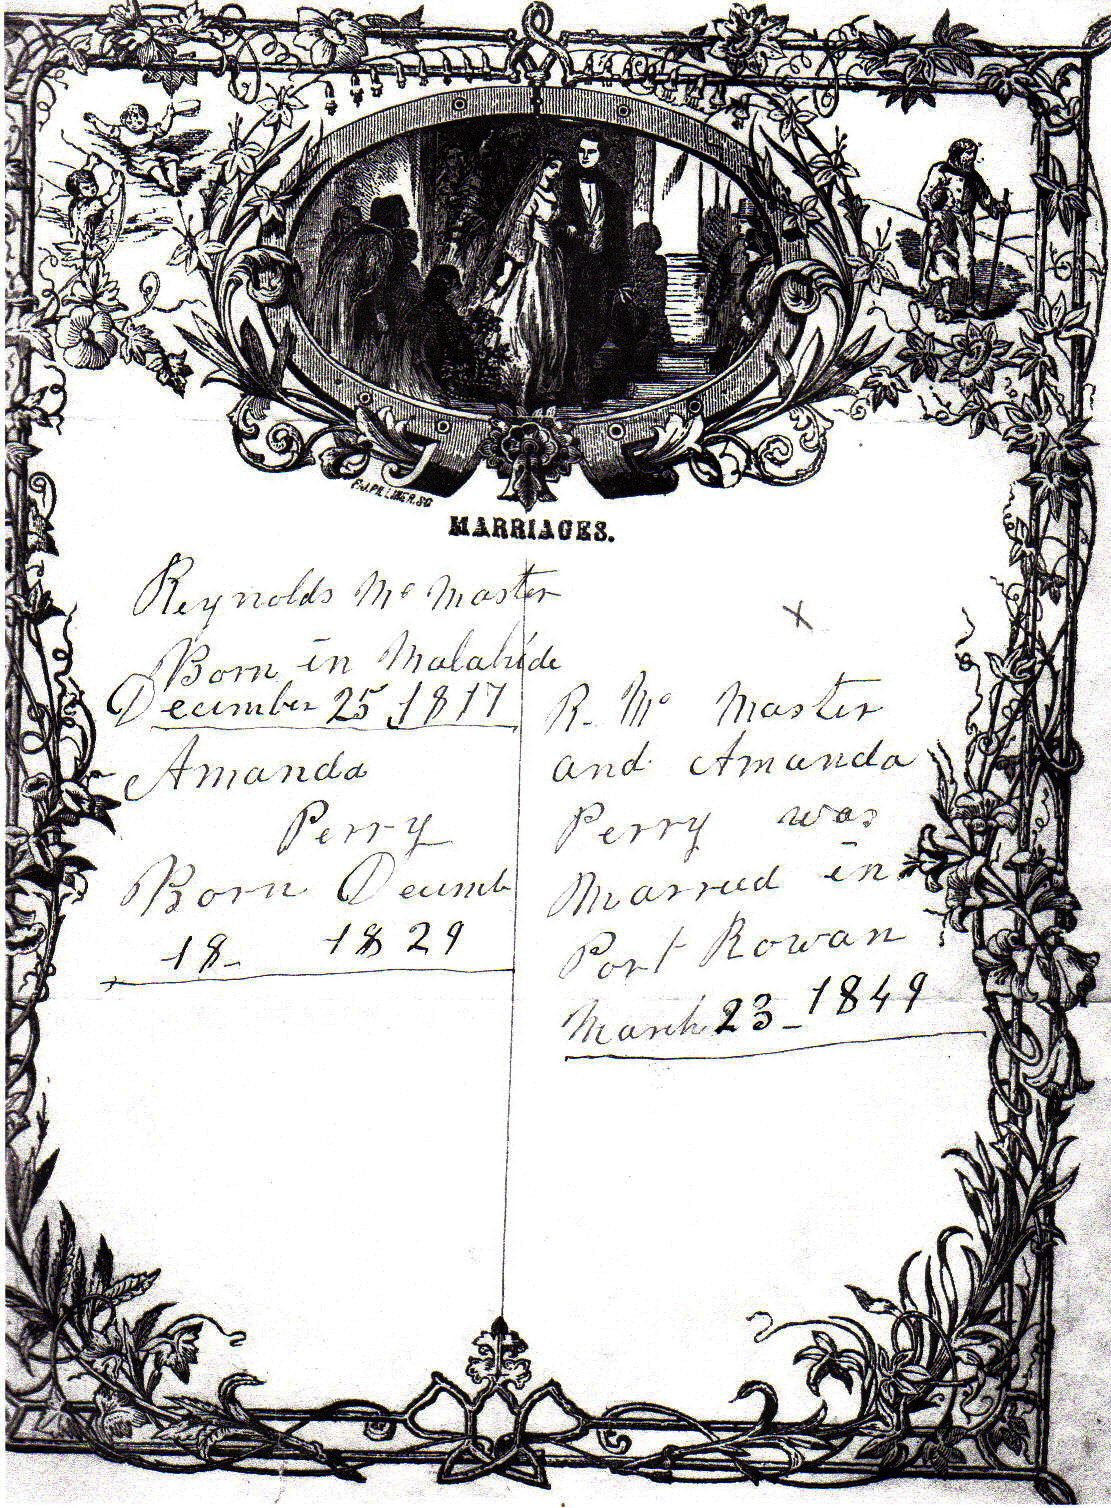 MARRIAGES.
Reynolds Mc Master
Born in Malahide
December 25 1817
Amanda
Perry
Born Decemb
18- 1829
X
R. Mc Master
and Amanda
Perry was
Married in
Port Rowan
March 23- 1849